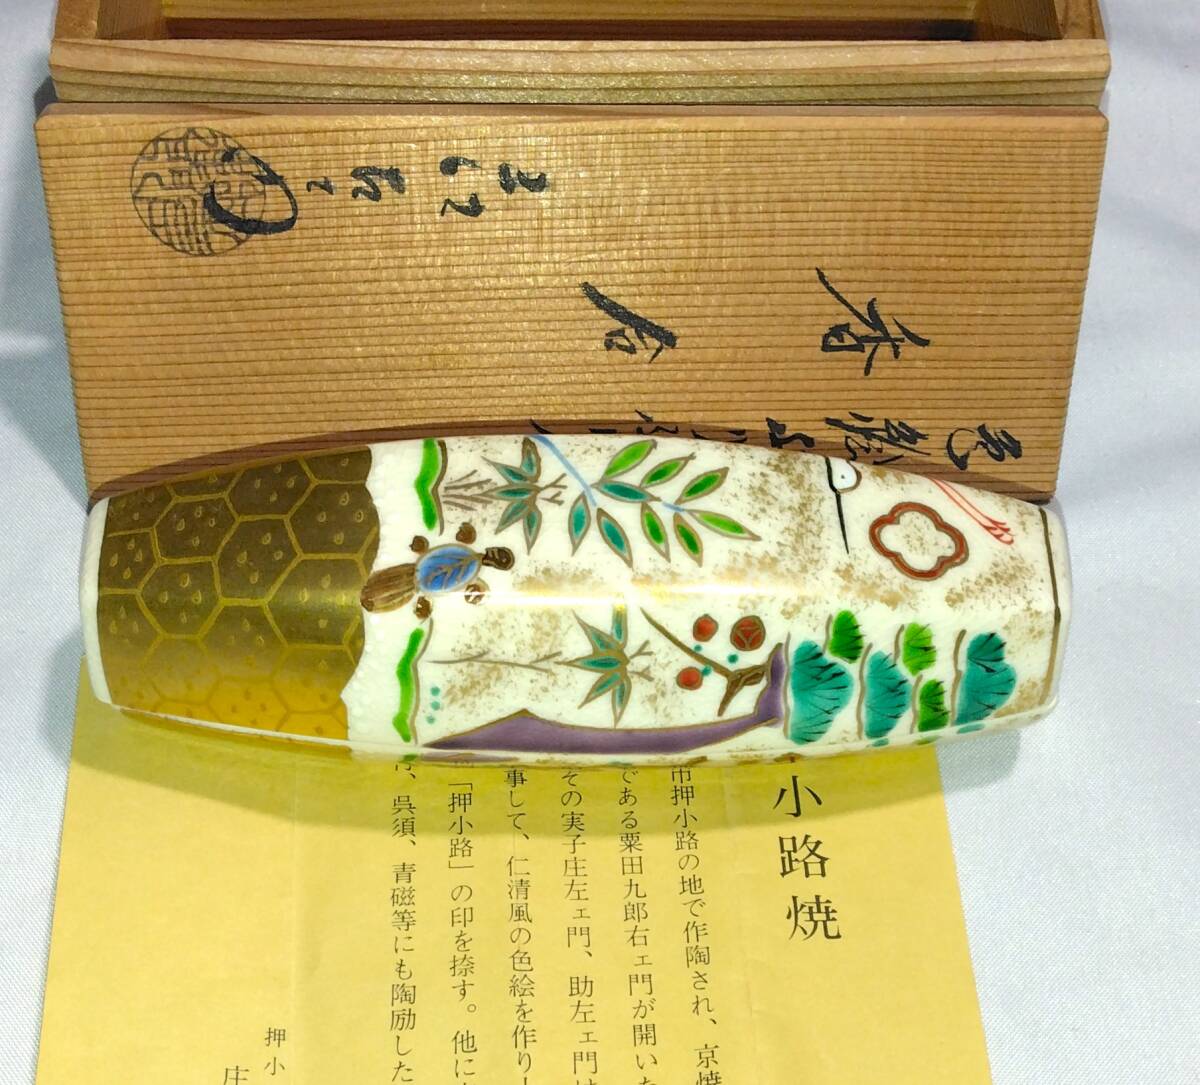 香
合
色絵
小路焼
市押小路の地で作陶され、京焼
である粟田九郎右ェ門が開いた
その実子庄左ェ門、助左ェ門は
事して、仁清風の色絵を作り
「押小路」の印を捺す。他に
呉須、青磁等にも陶励した
押小
庄